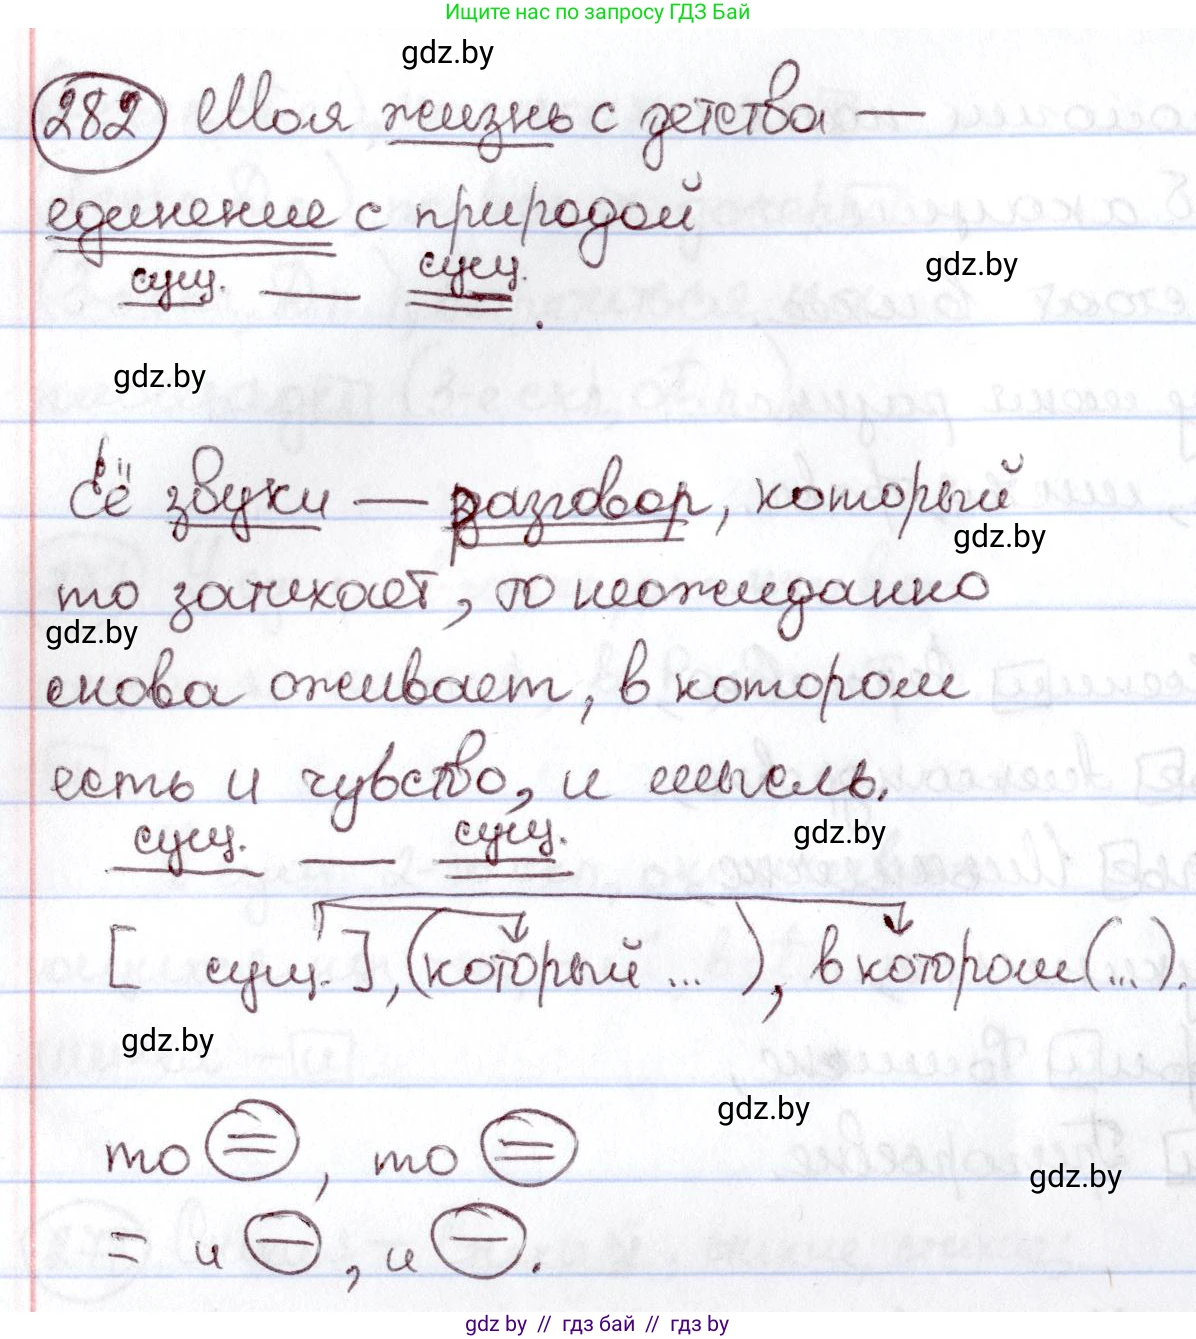 Ищите нас по запросу ГДЗ Бай
gdz.by
282 Моя жизнь с детства —
единение с природой
gdz.by
сущ. — сущ.
gdz.by
Её звуки — разговор, который
gdz.by
то затихает, то неожиданно
gdz.by
снова оживает, в котором
есть и чувство, и мысль.
gdz.by
сущ. — сущ.
[ сущ.], (который ... ), в котором (...).
gdz.by
gdz.by
то =, то =
gdz.by
= и —, и —.
gdz.by // гдз бай // гдз by